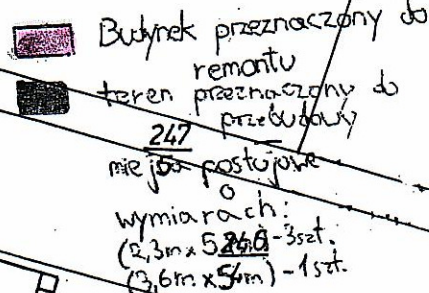 Budynek przeznaczony do
remontu
teren przeznaczony do
przebudowy
247
miejsca postojowe
o
wymiarach:
(2,3m x 5 - 3szt.
(3,6m x 5m) - 1szt.